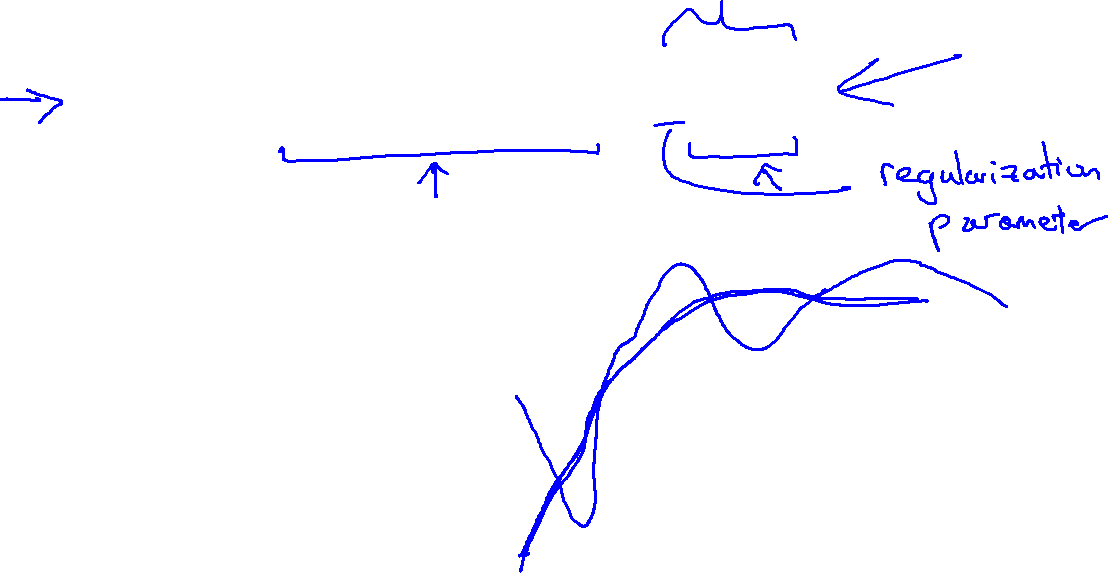 regularization
parameter